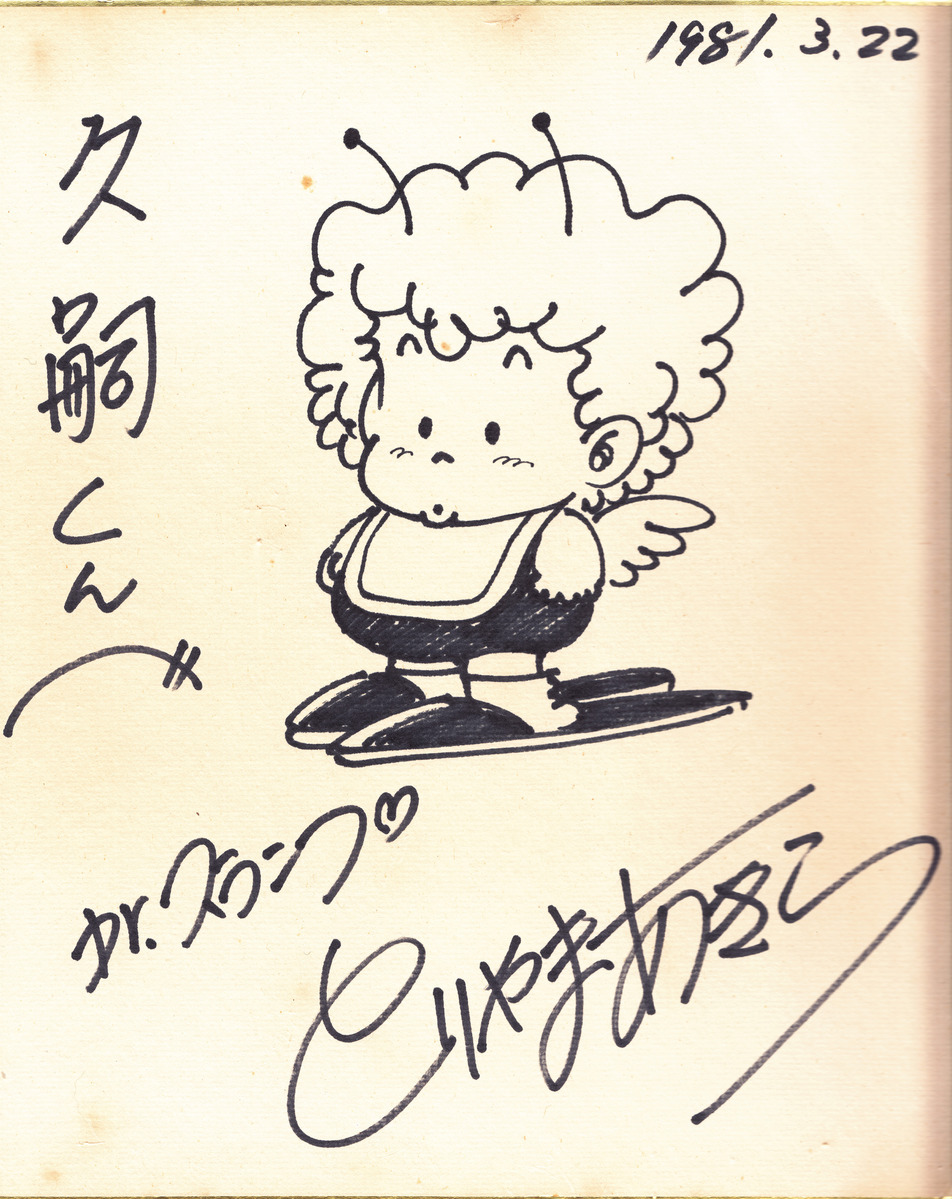 1981.3.22
久嗣くんへ
Dr.スランプ♡
とりやまあきら